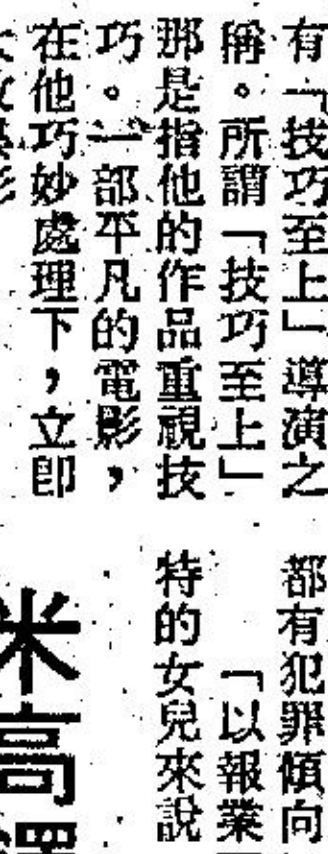 有「技巧至上」導演之
稱。所謂「技巧至上」
那是指他的作品重視技
巧。一部平凡的電影，
在他巧妙處理下，立即
都有犯罪傾向
「以報業
特的女兒來說
米高